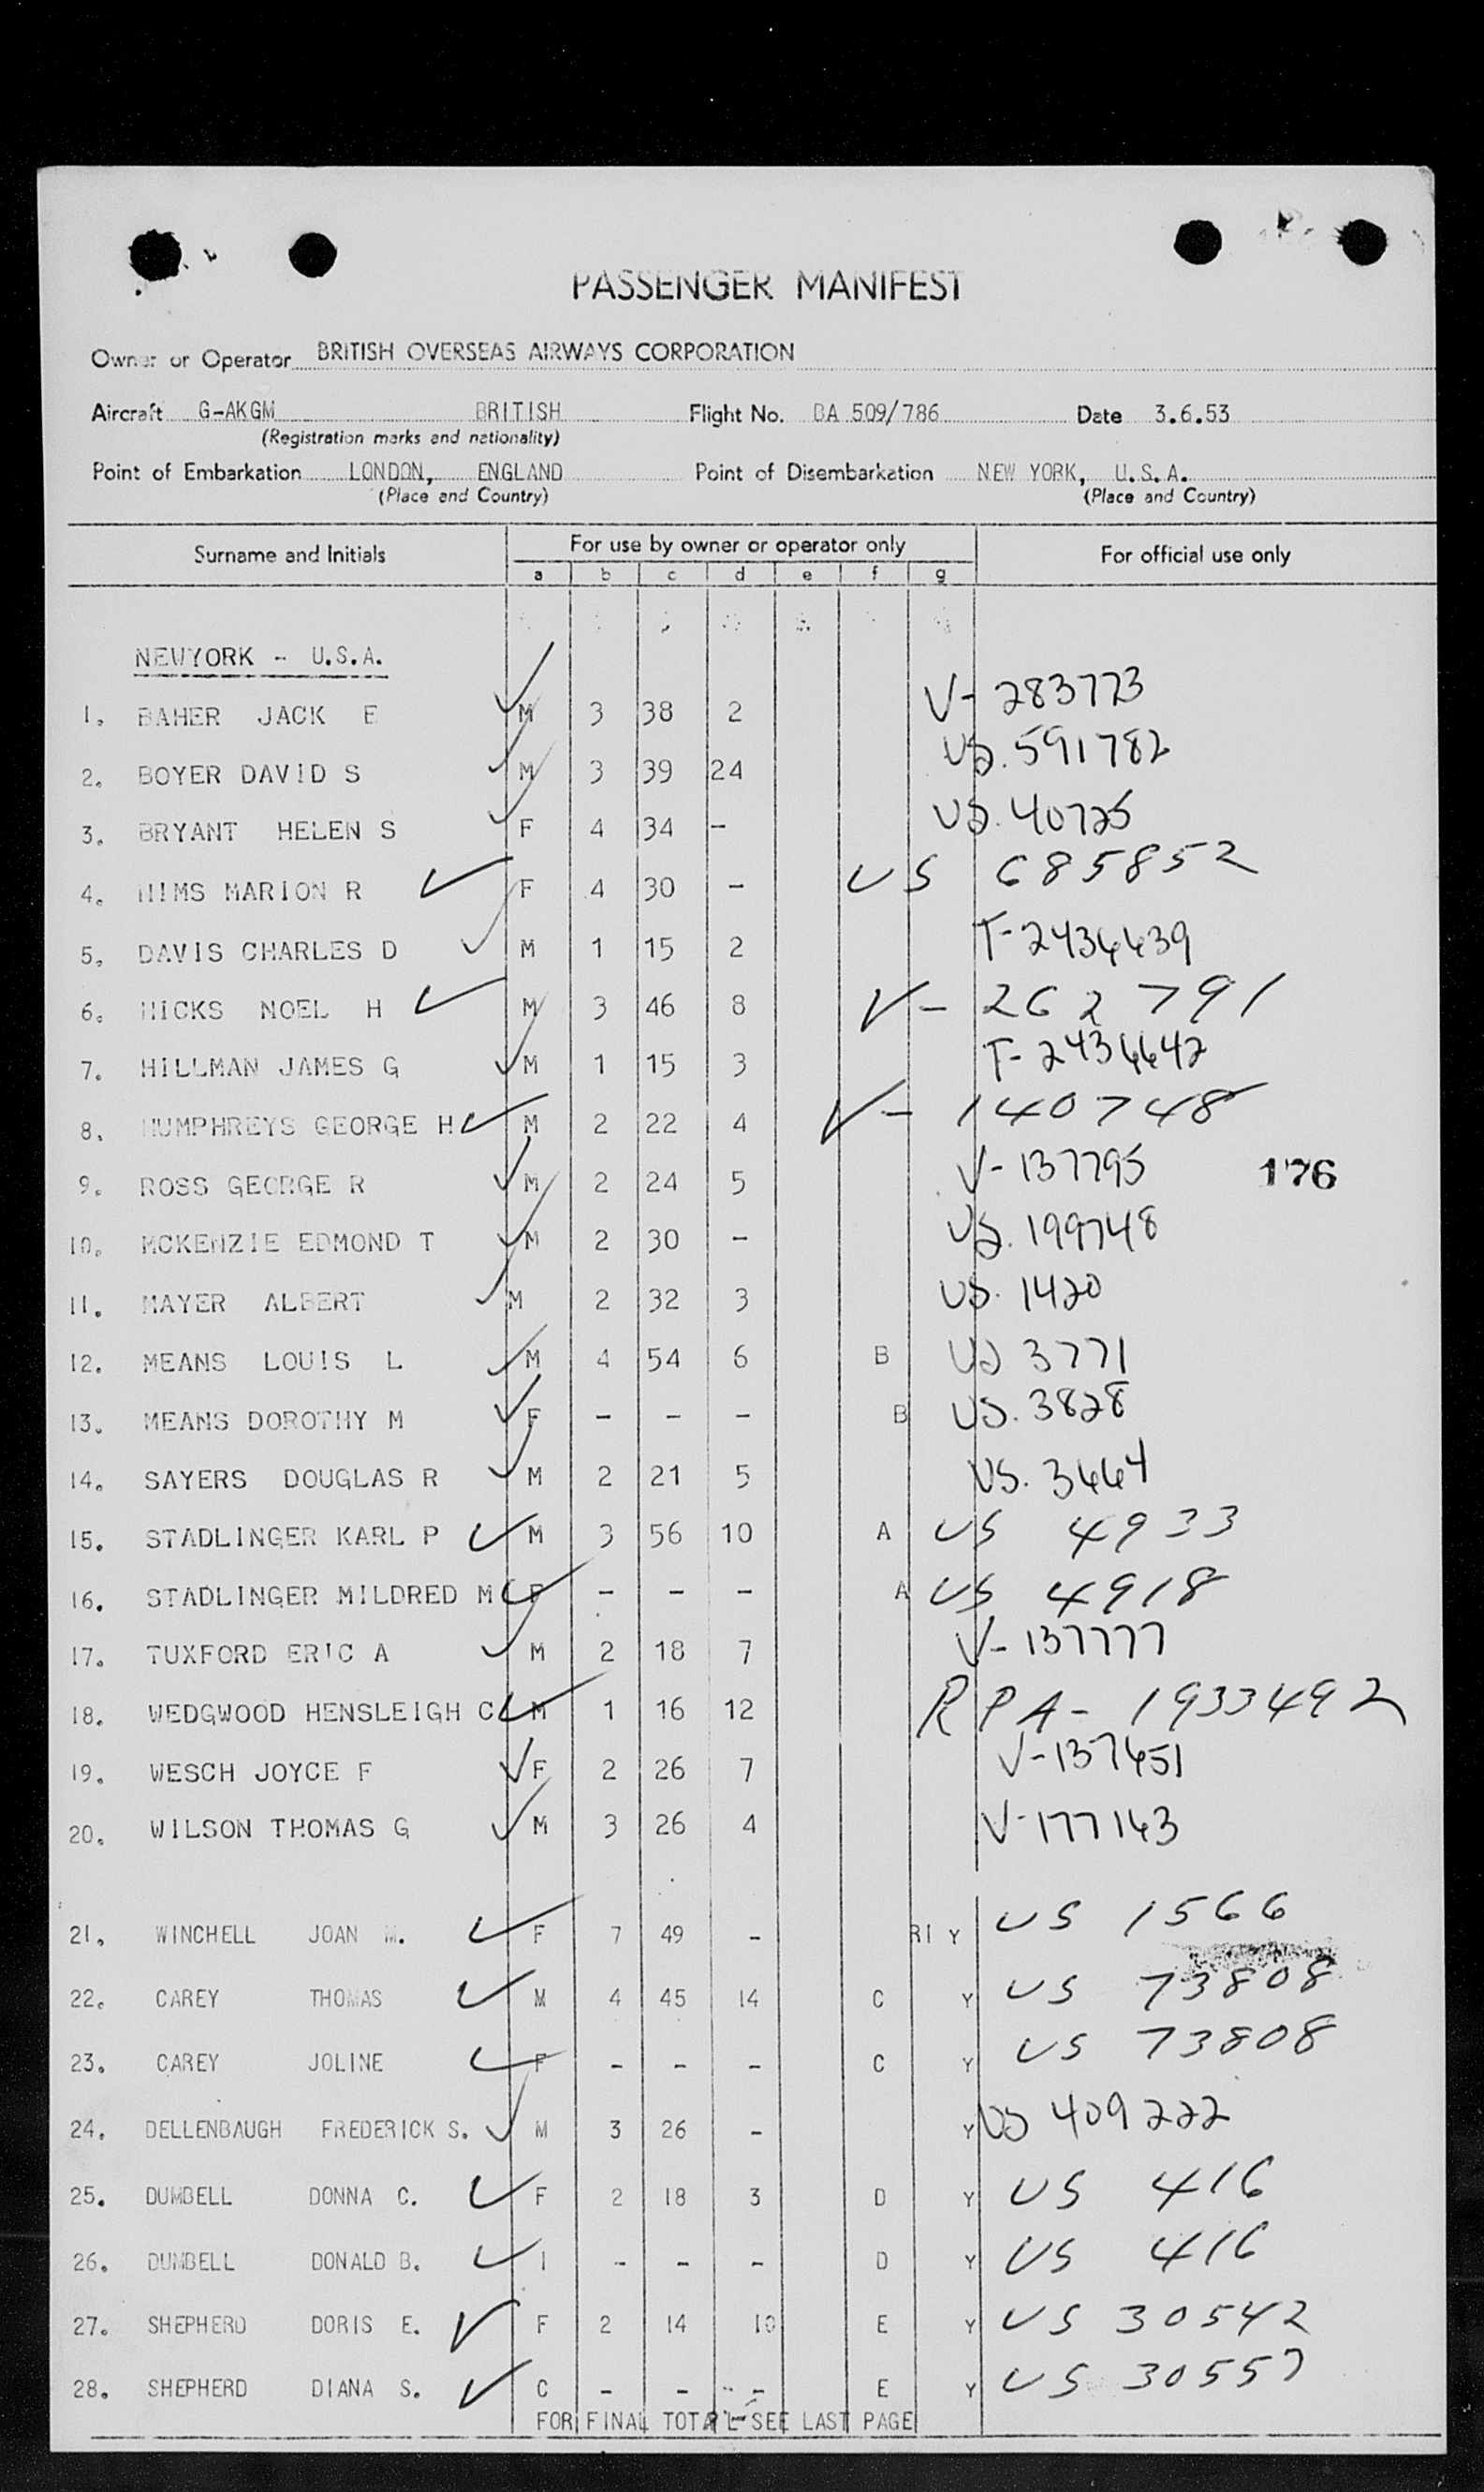 PASSENGER MANIFEST
Owner or Operator BRITISH OVERSEAS AIRWAYS CORPORATION
Aircraft G-AKGM BRITISH Flight No. BA 509/786 Date 3.6.53
(Registration marks and nationality)
Point of Embarkation LONDON, ENGLAND Point of Disembarkation NEW YORK, U.S.A.
(Place and Country) (Place and Country)
Surname and Initials For use by owner or operator only For official use only
a b c d e f g
NEWYORK - U.S.A.
1. BAHER JACK E M 3 38 2 V-283773
2. BOYER DAVID S M 3 39 24 US. 591782
3. BRYANT HELEN S F 4 34 - US. 40725
4. NIMS MARION R F 4 30 - US 685852
5. DAVIS CHARLES D M 1 15 2 T-2434439
6. HICKS NOEL H M 3 46 8 V-262791
7. HILLMAN JAMES G M 1 15 3 T-2434642
8. HUMPHREYS GEORGE H M 2 22 4 V-140748
9. ROSS GEORGE R M 2 24 5 V-137795 176
10. MCKENZIE EDMOND T M 2 30 - US. 199748
11. MAYER ALBERT M 2 32 3 US. 1420
12. MEANS LOUIS L M 4 54 6 B US 3771
13. MEANS DOROTHY M F - - - B US. 3828
14. SAYERS DOUGLAS R M 2 21 5 US. 3664
15. STADLINGER KARL P M 3 56 10 A US 4933
16. STADLINGER MILDRED M F - - - A US 4918
17. TUXFORD ERIC A M 2 18 7 V-137777
18. WEDGWOOD HENSLEIGH C M 1 16 12 RPA-1933492
19. WESCH JOYCE F F 2 26 7 V-137651
20. WILSON THOMAS G M 3 26 4 V-177163
21. WINCHELL JOAN M. F 7 49 - RI Y US 1566
22. CAREY THOMAS M 4 45 14 C Y US 73808
23. CAREY JOLINE F - - - C Y US 73808
24. DELLENBAUGH FREDERICK S. M 3 26 - Y US 409222
25. DUMBELL DONNA C. F 2 18 3 D Y US 416
26. DUMBELL DONALD B. I - - - D Y US 416
27. SHEPHERD DORIS E. F 2 14 10 E Y US 30542
28. SHEPHERD DIANA S. C - - - E Y US 30557
FOR FINAL TOTAL SEE LAST PAGE